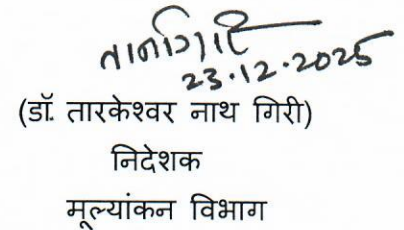 तानगिरि
23.12.2025
(डॉ. तारकेश्वर नाथ गिरी)
निदेशक
मूल्यांकन विभाग